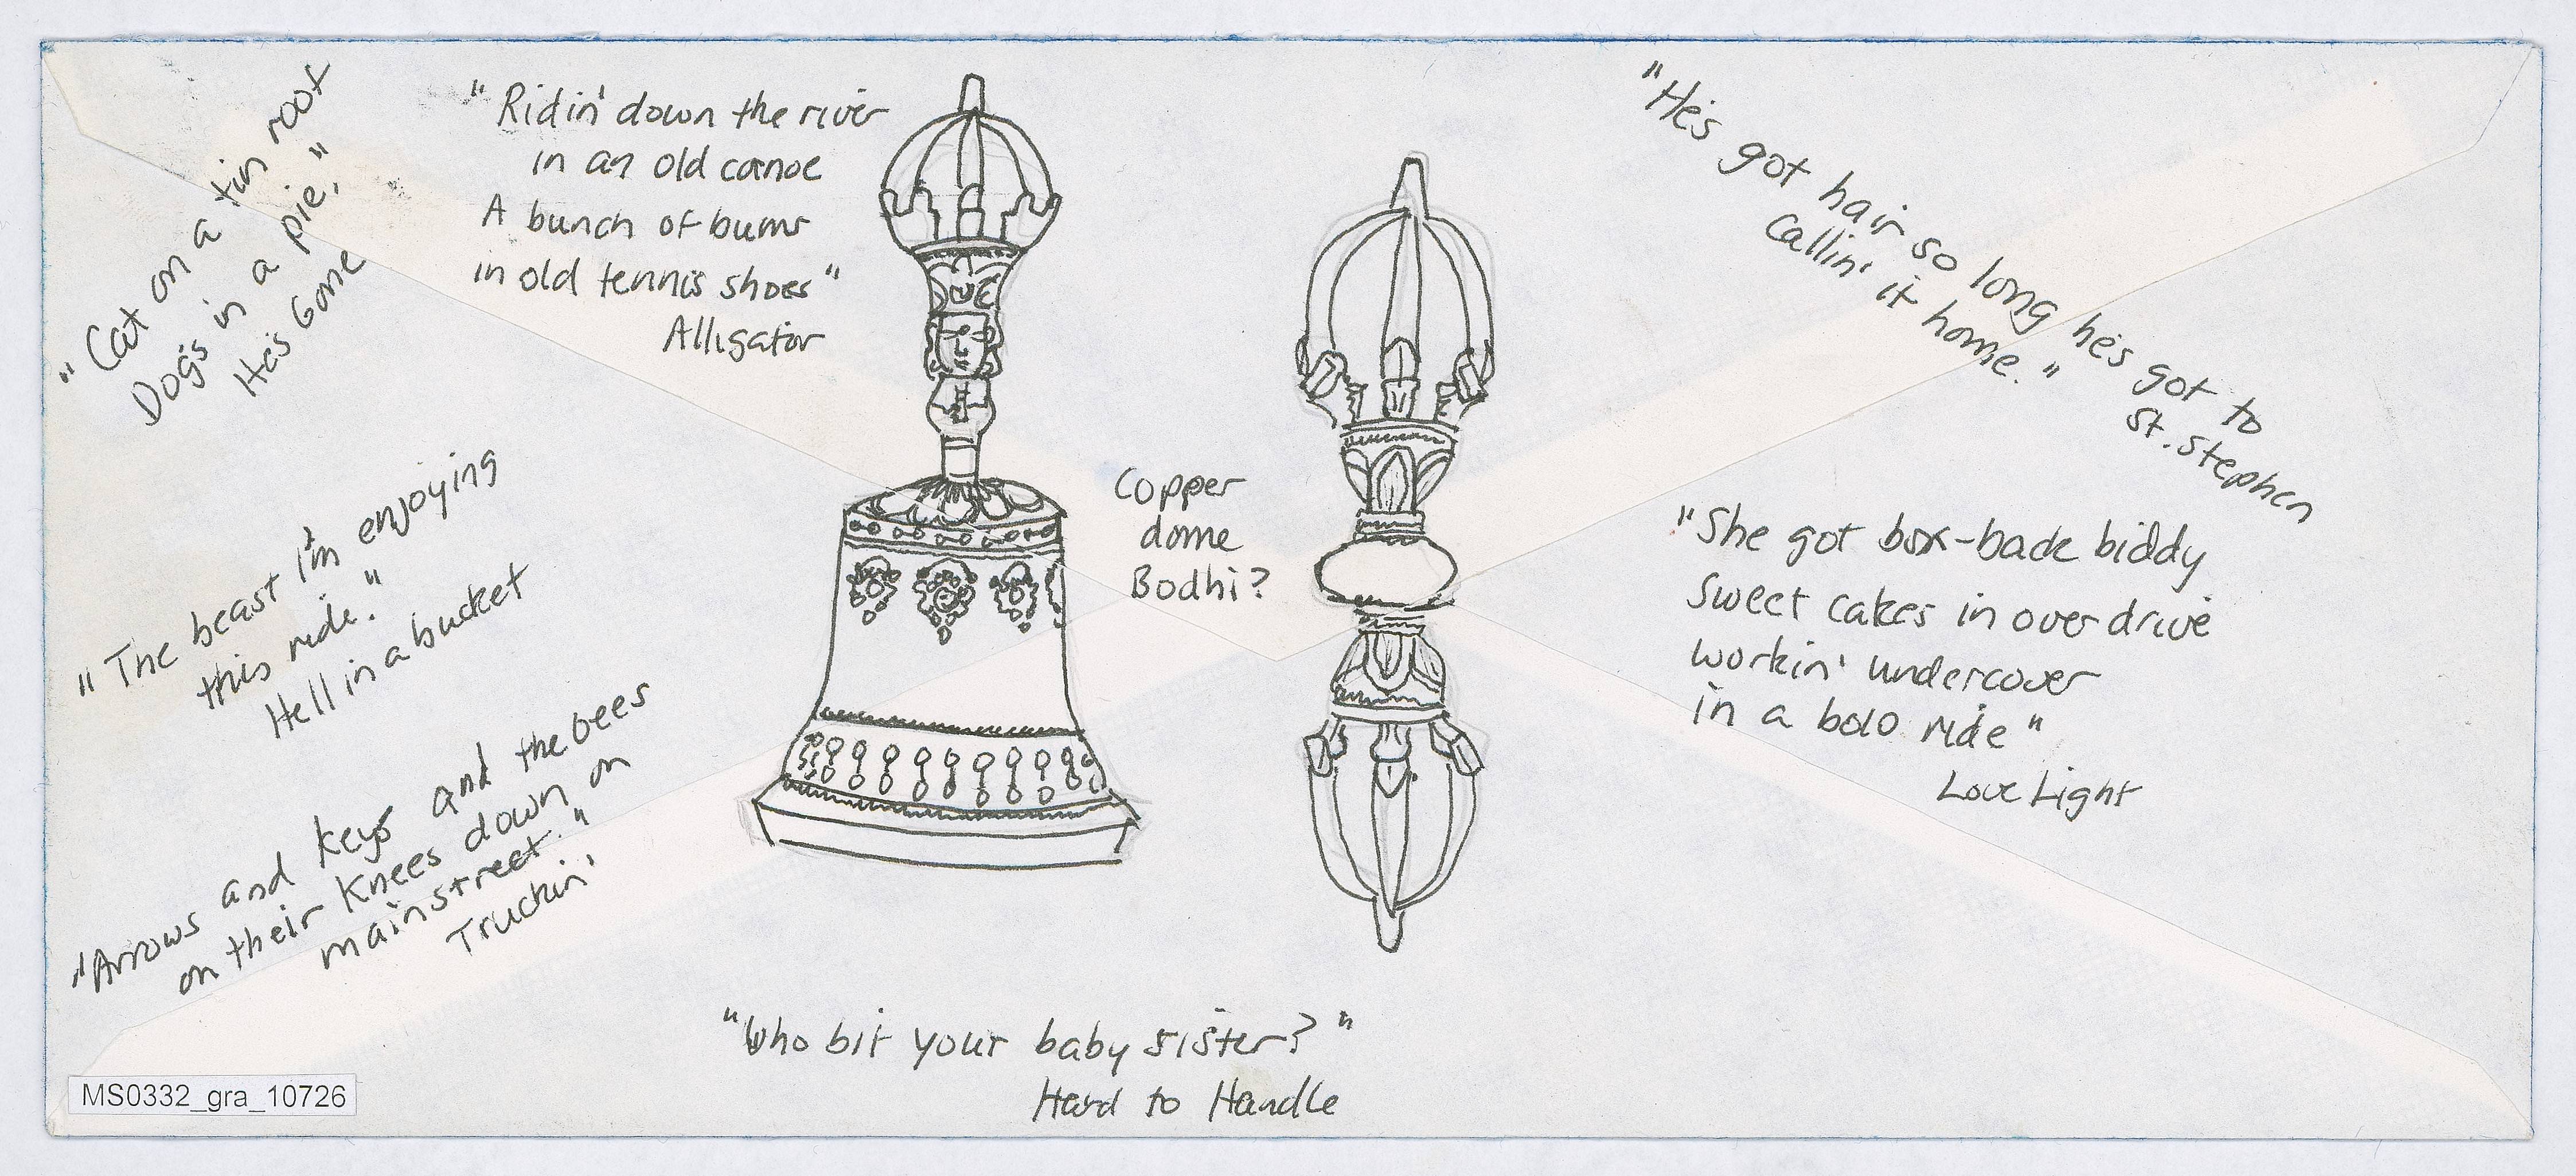 "Cat on a tin roof
Dog's in a pie,"
He's Gone
"Ridin' down the river
in an old canoe
A bunch of bums
in old tennis shoes"
Alligator
"He's got hair so long he's got to
callin' it home."
St. Stephen
"The beast I'm enjoying
this ride."
Hell in a bucket
Copper
dome
Bodhi?
"She got box-back biddy
sweet cakes in over drive
workin' undercover
in a bolo ride"
Love Light
"Arrows and keys and the bees
on their knees down on
mainstreet."
Truckin'
"Who bit your baby sister?"
Hard to Handle
MS0332_gra_10726